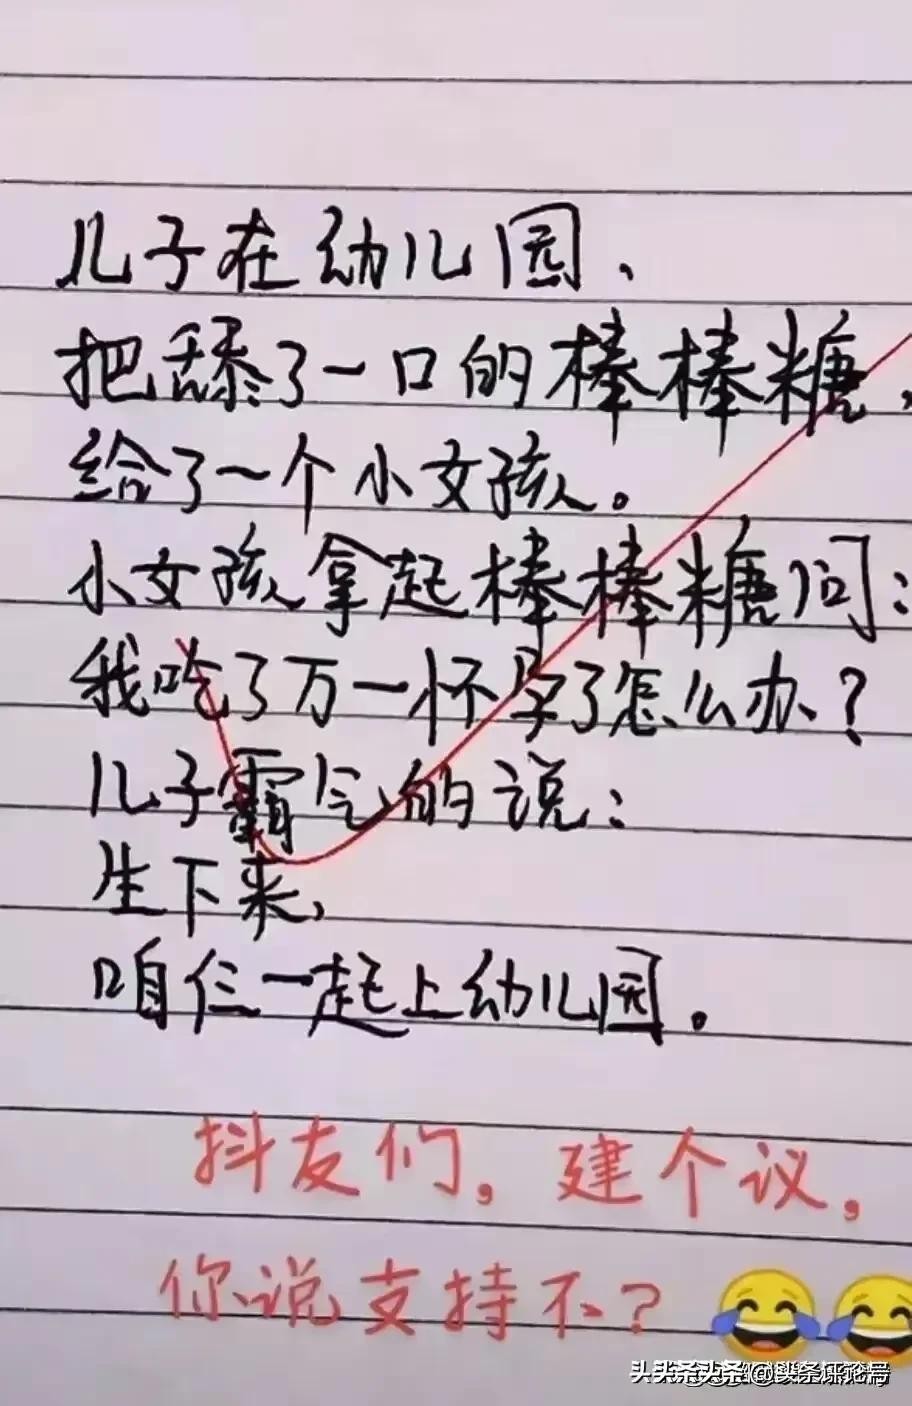 儿子在幼儿园、
把舔了一口的棒棒糖，
给了一个小女孩。
小女孩拿起棒棒糖问：
我吃了万一怀孕了怎么办？
儿子霸气的说：
生下来，
咱仨一起上幼儿园。
抖友们，建个议，
你说支持不？
头条 @头条评论号